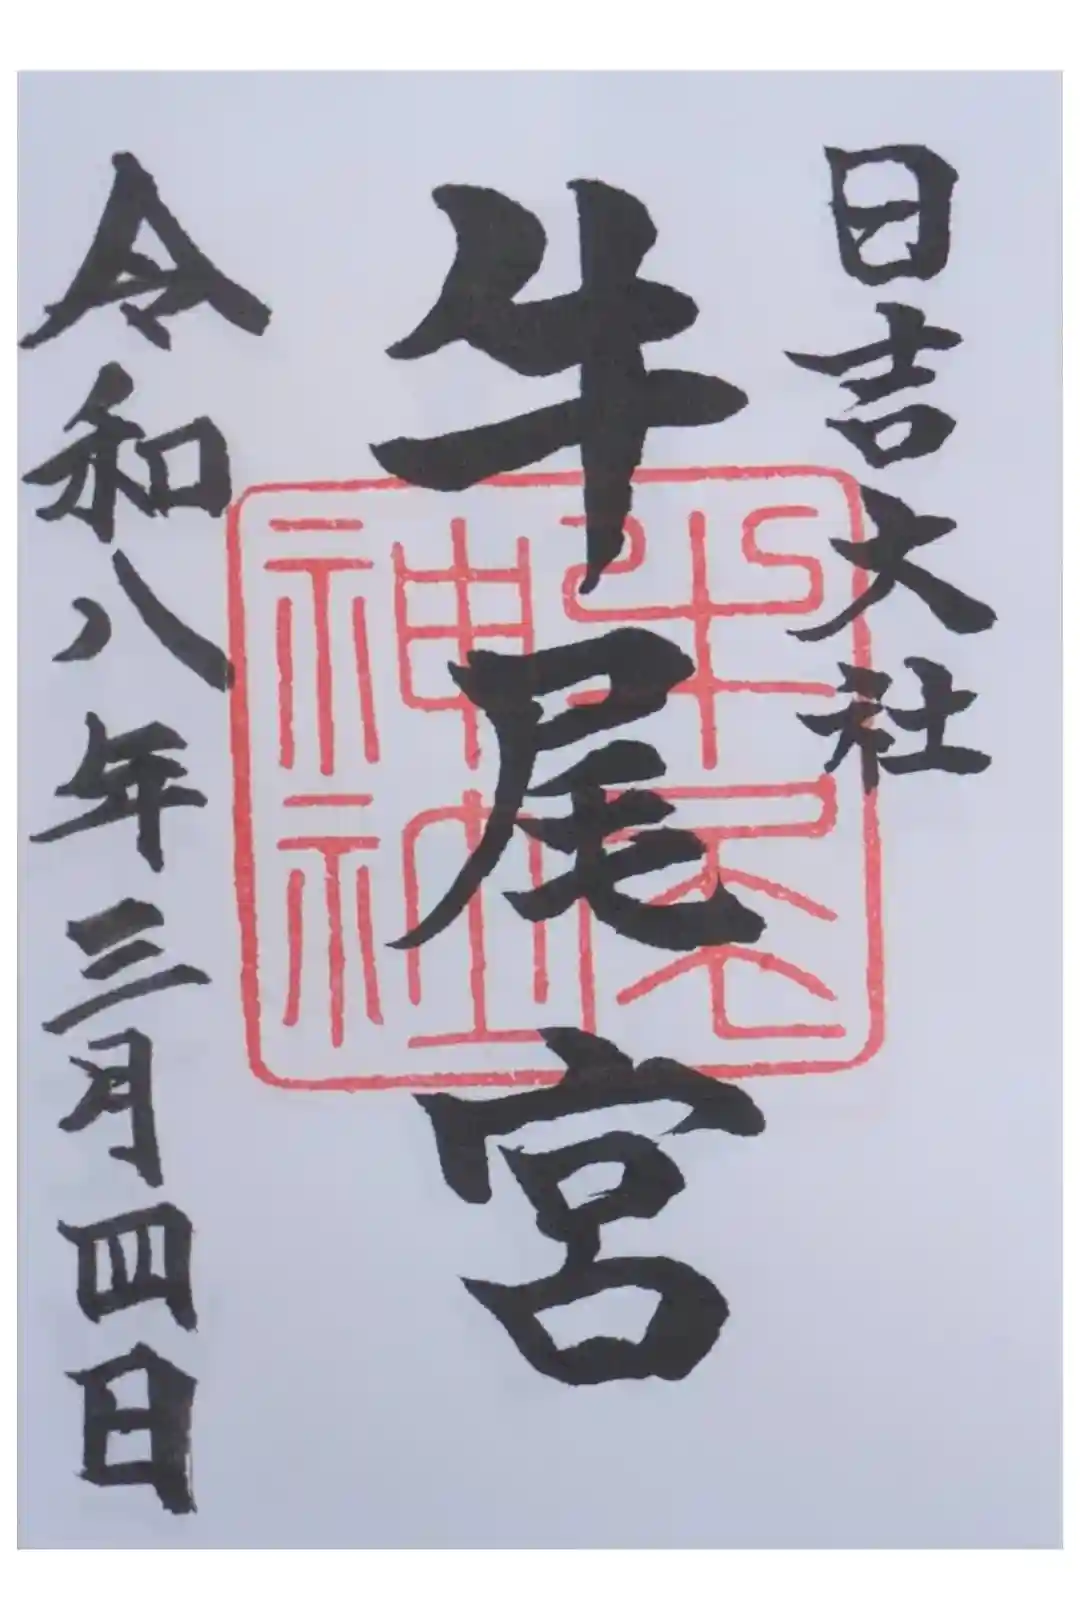 日吉大社
牛尾宮
牛尾神社
令和八年三月四日